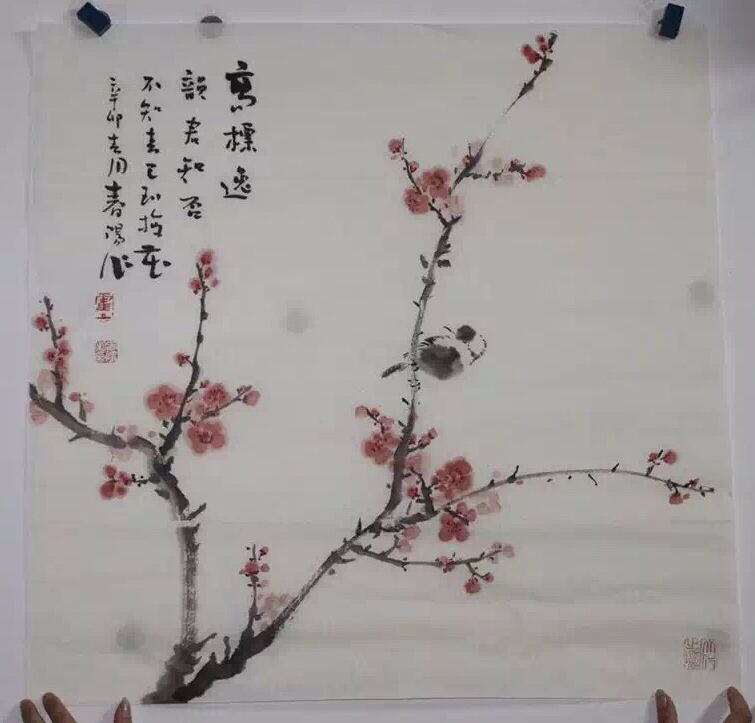 高標逸
韻君知否
不知春已到花
辛卯春月春陽作